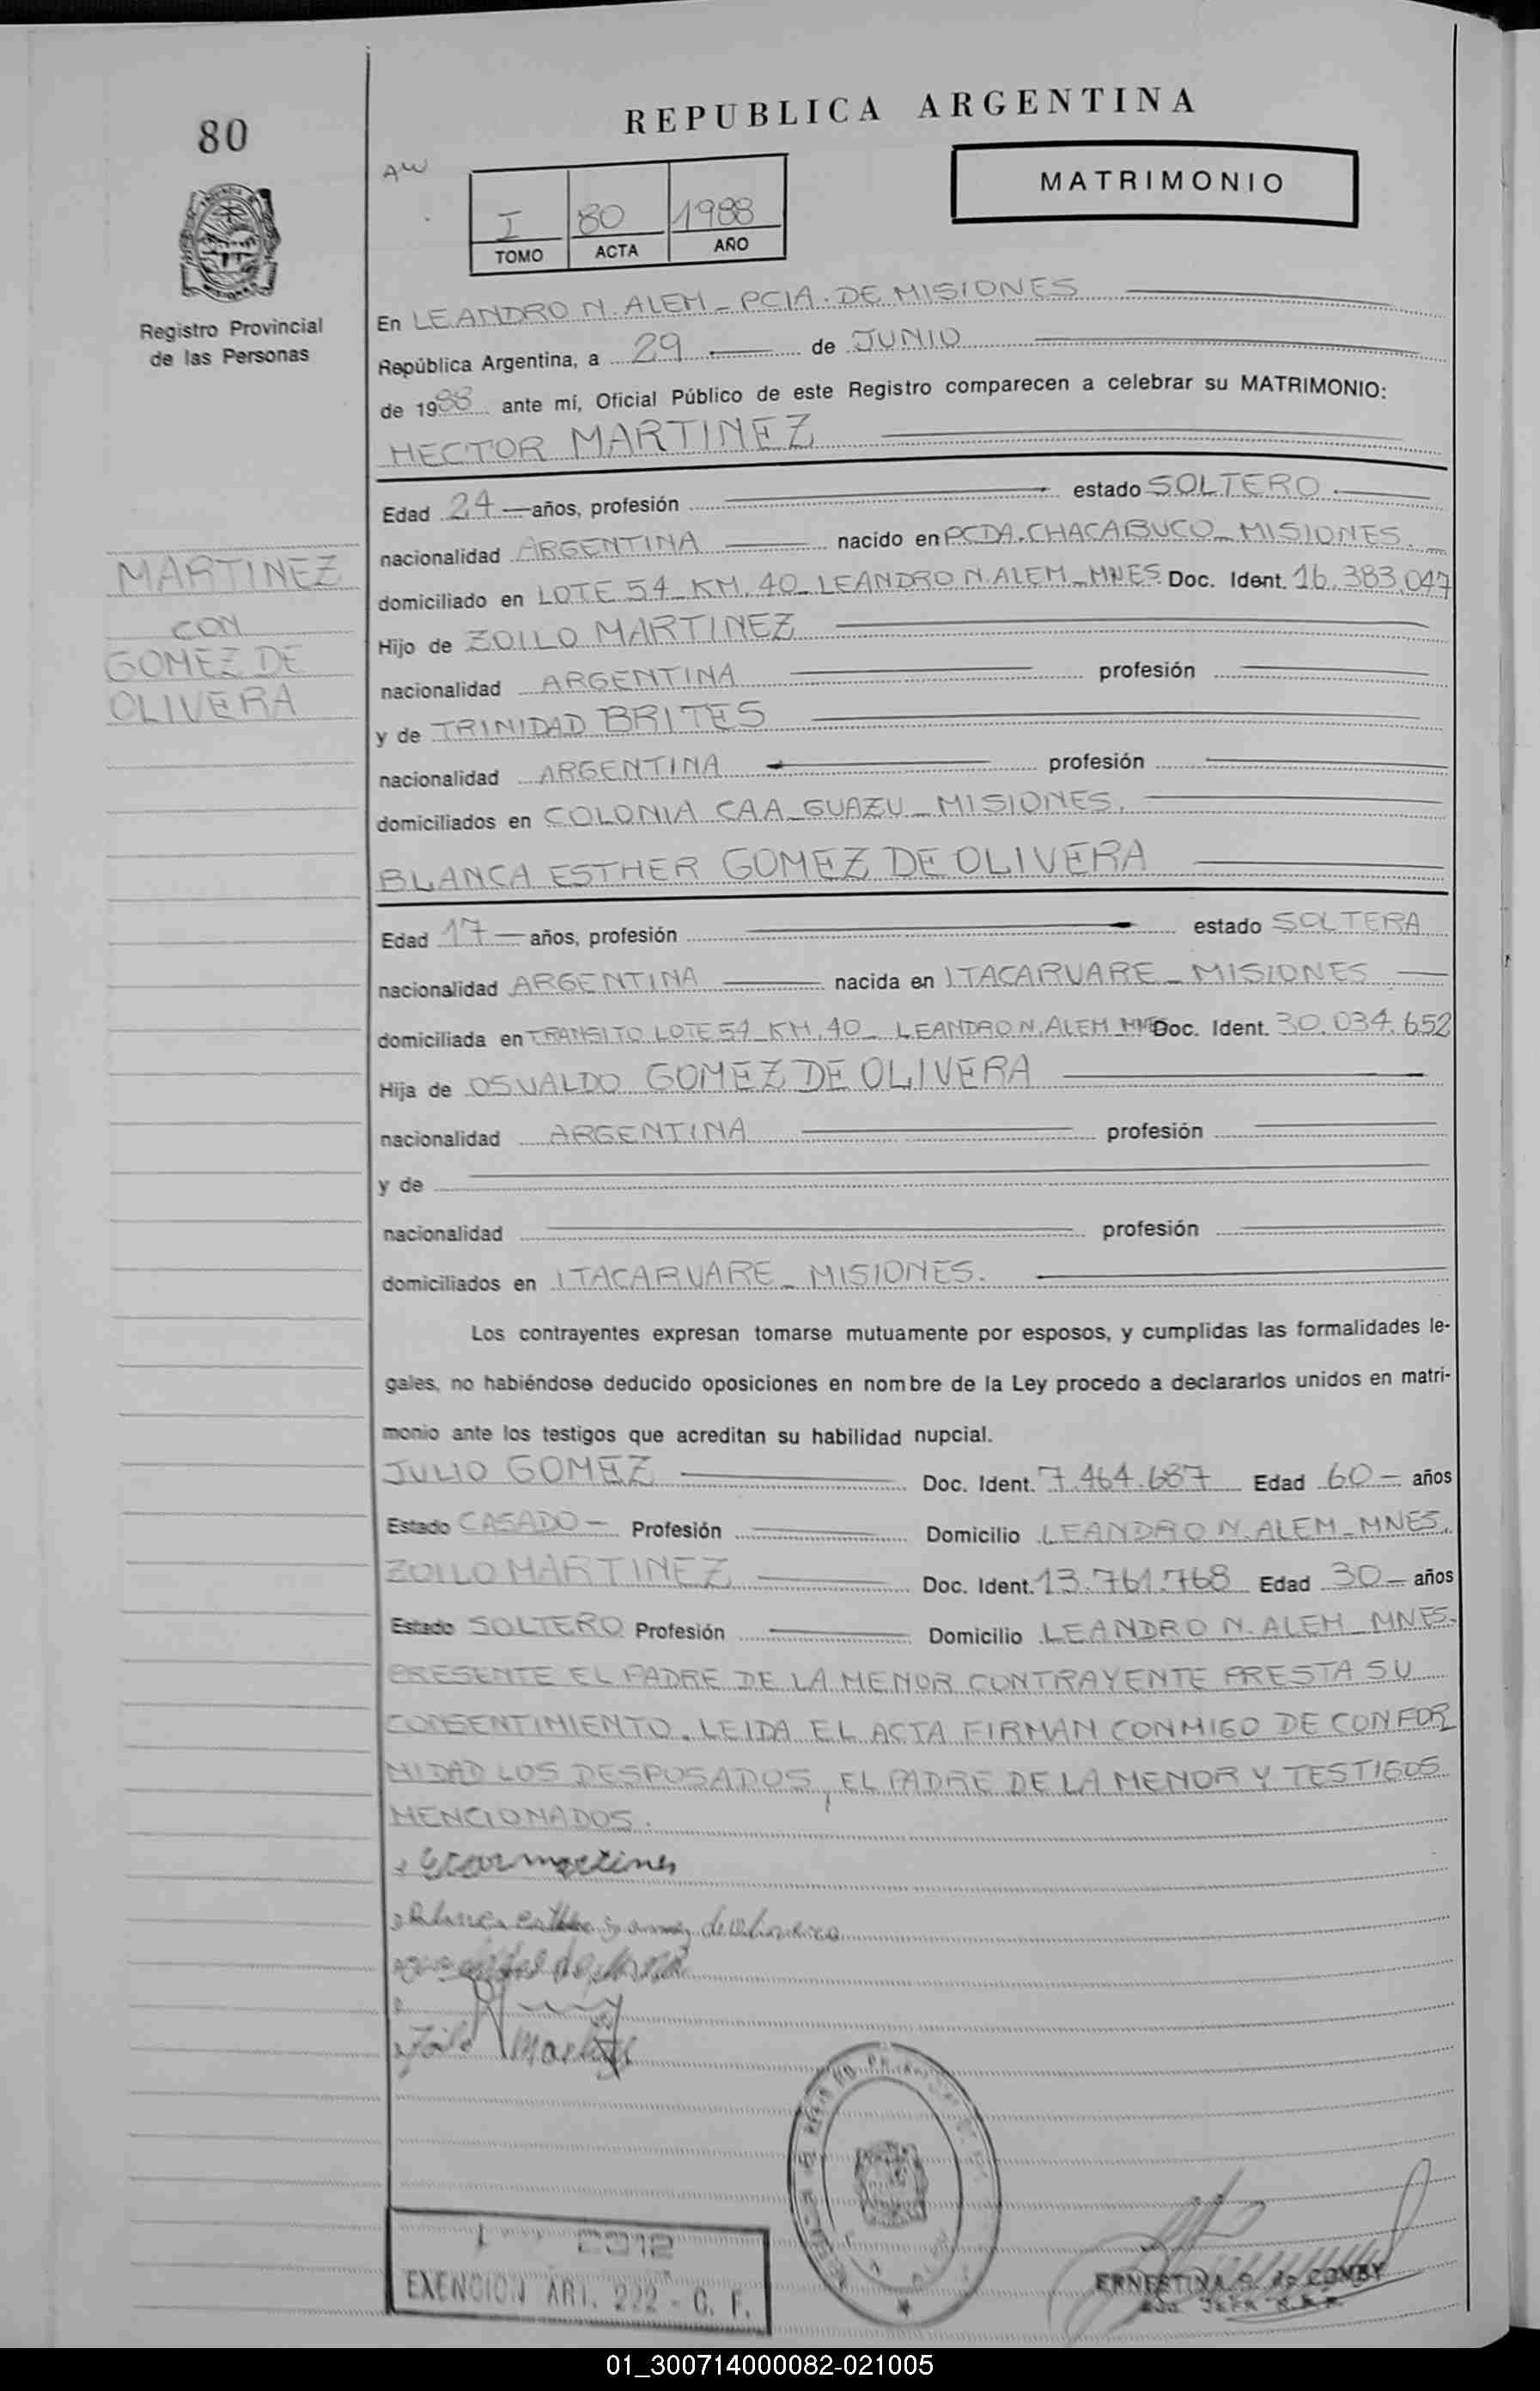 80
REPUBLICA ARGENTINA
AW
MATRIMONIO
I 80 1988
TOMO ACTA AÑO
Registro Provincial
de las Personas
En LEANDRO N. ALEM - PCIA. DE MISIONES
República Argentina, a 29 de JUNIO
de 1988 ante mí, Oficial Público de este Registro comparecen a celebrar su MATRIMONIO:
HECTOR MARTINEZ
Edad 24 años, profesión estado SOLTERO
MARTINEZ
CON
GOMEZ DE
OLIVERA
nacionalidad ARGENTINA nacido en PCDA. CHACABUCO - MISIONES.
domiciliado en LOTE 54 - KM. 40 - LEANDRO N. ALEM - MNES. Doc. Ident. 16.383.047
Hijo de ZOILO MARTINEZ
nacionalidad ARGENTINA profesión
y de TRINIDAD BRITES
nacionalidad ARGENTINA profesión
domiciliados en COLONIA CAA-GUAZU - MISIONES.
BLANCA ESTHER GOMEZ DE OLIVERA
Edad 17 años, profesión estado SOLTERA
nacionalidad ARGENTINA nacida en ITACARUARE - MISIONES
domiciliada en TRANSITO LOTE 54 - KM. 40 - LEANDRO N. ALEM MNES Doc. Ident. 30.034.652
Hija de OSVALDO GOMEZ DE OLIVERA
nacionalidad ARGENTINA profesión
y de
nacionalidad profesión
domiciliados en ITACARUARE - MISIONES.
Los contrayentes expresan tomarse mutuamente por esposos, y cumplidas las formalidades le-
gales, no habiéndose deducido oposiciones en nombre de la Ley procedo a declararlos unidos en matri-
monio ante los testigos que acreditan su habilidad nupcial.
JULIO GOMEZ Doc. Ident. 7.464.687 Edad 60 - años
Estado CASADO - Profesión Domicilio LEANDRO N. ALEM - MNES.
ZOILO MARTINEZ Doc. Ident. 13.761.768 Edad 30 - años
Estado SOLTERO Profesión Domicilio LEANDRO N. ALEM - MNES.
PRESENTE EL PADRE DE LA MENOR CONTRAYENTE PRESTA SU
CONSENTIMIENTO. LEIDA EL ACTA FIRMAN CONMIGO DE CONFOR
MIDAD LOS DESPOSADOS, EL PADRE DE LA MENOR Y TESTIGOS
MENCIONADOS.
martines
Blanca esther gomez de olivera
Zoilo Martinez
EXENCION ART. 222 - C. F.
ERNESTINA S. de COMBY
01_300714000082-021005